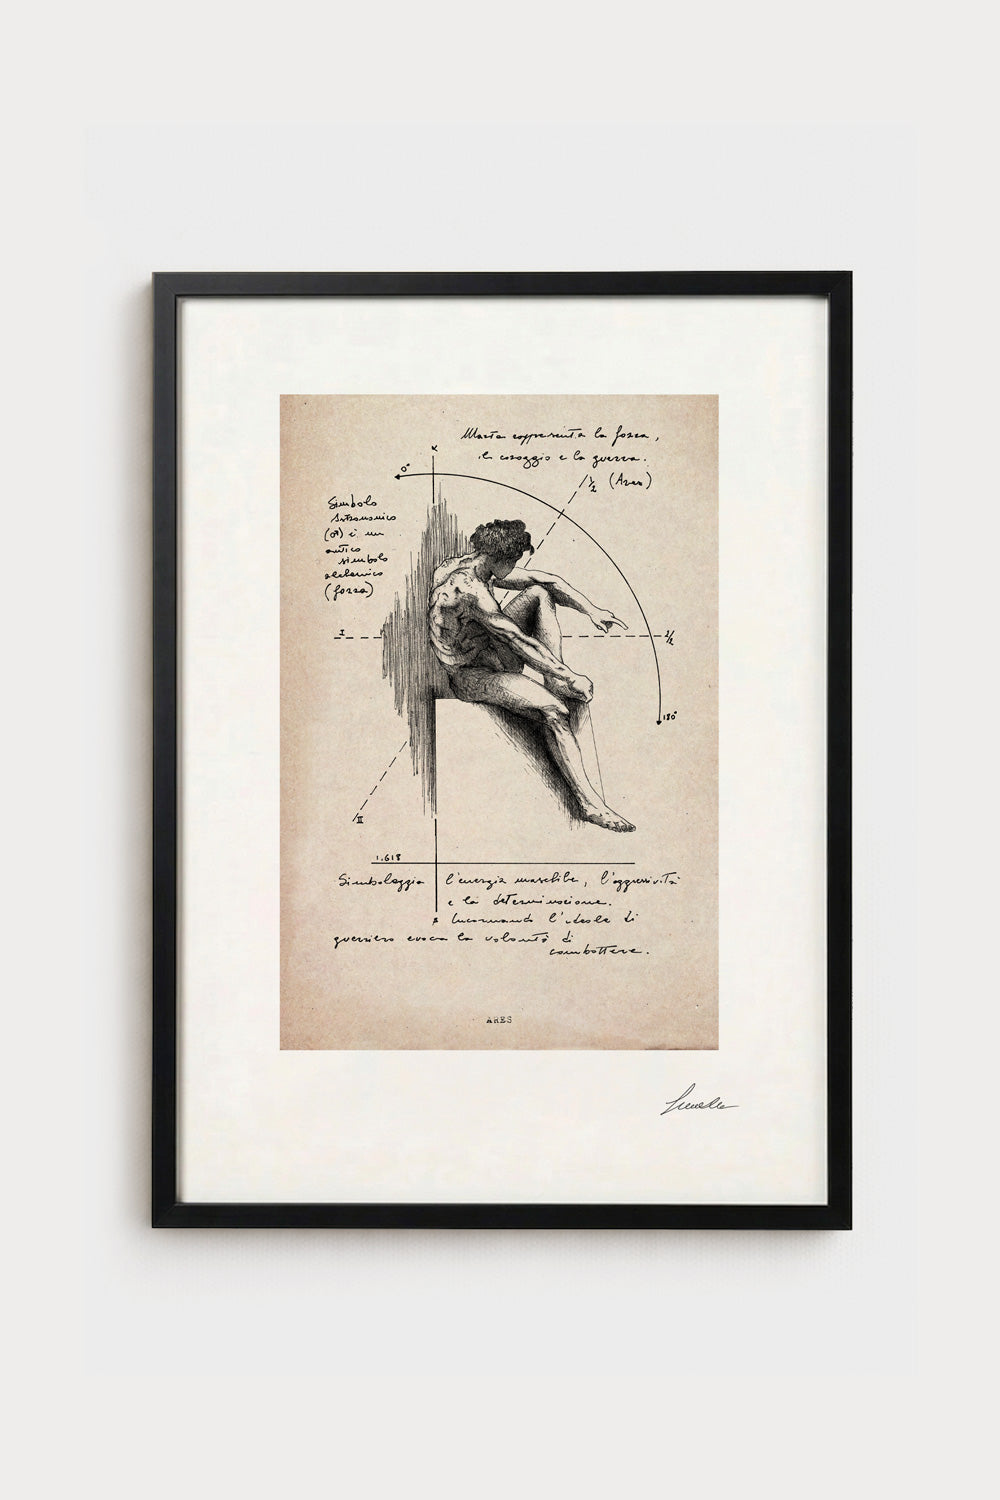 Marte rappresenta la forza,
il coraggio e la guerra.
(Ares)
K
0°
1/2
Simbolo
Astronomico
(♂) è un
antico
simbolo
alchemico
(forza)
I
1/2
180°
II
1.618
Simboleggia l'energia maschile, l'aggressività
e la determinazione.
B Incarnando l'ideale di
guerriero evoca la volontà di
combattere.
ARES